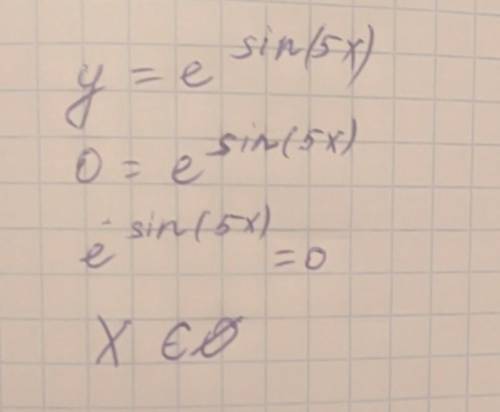 y = e^sin(5x)
0 = e^sin(5x)
e^sin(5x) = 0
X ∈ ∅